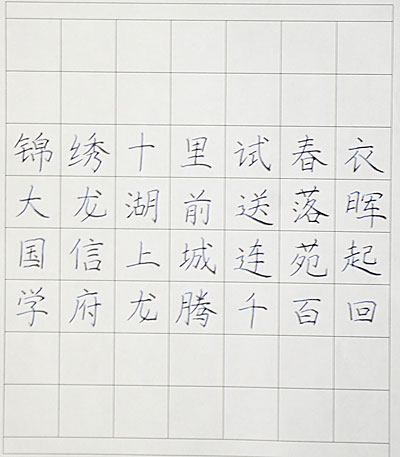 锦绣十里试春衣
大龙湖前送落晖
国信上城连苑起
学府龙腾千百回